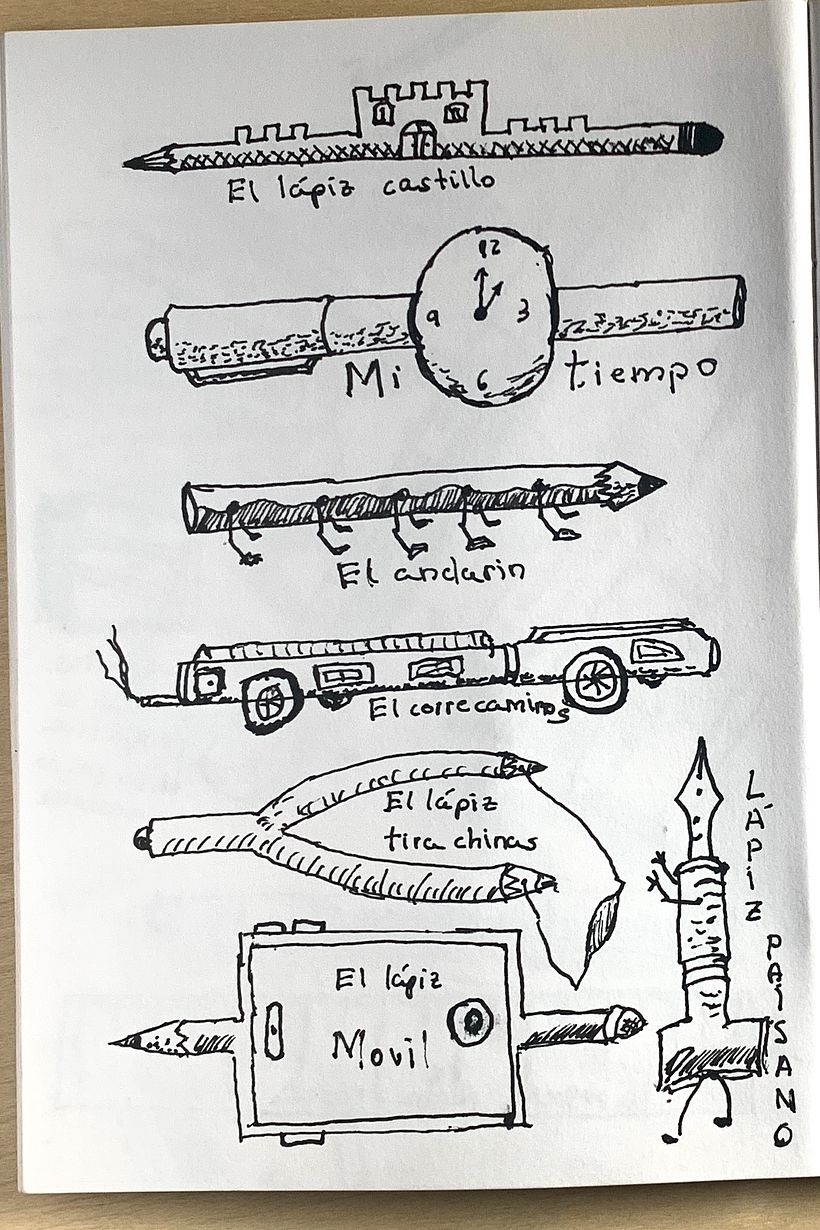 El lápiz castillo
12
9 3
6
Mi tiempo
El andarin
El correcaminos
El lápiz
tira chinas
El lápiz
Movil
LÁPIZ
PAÍSANO